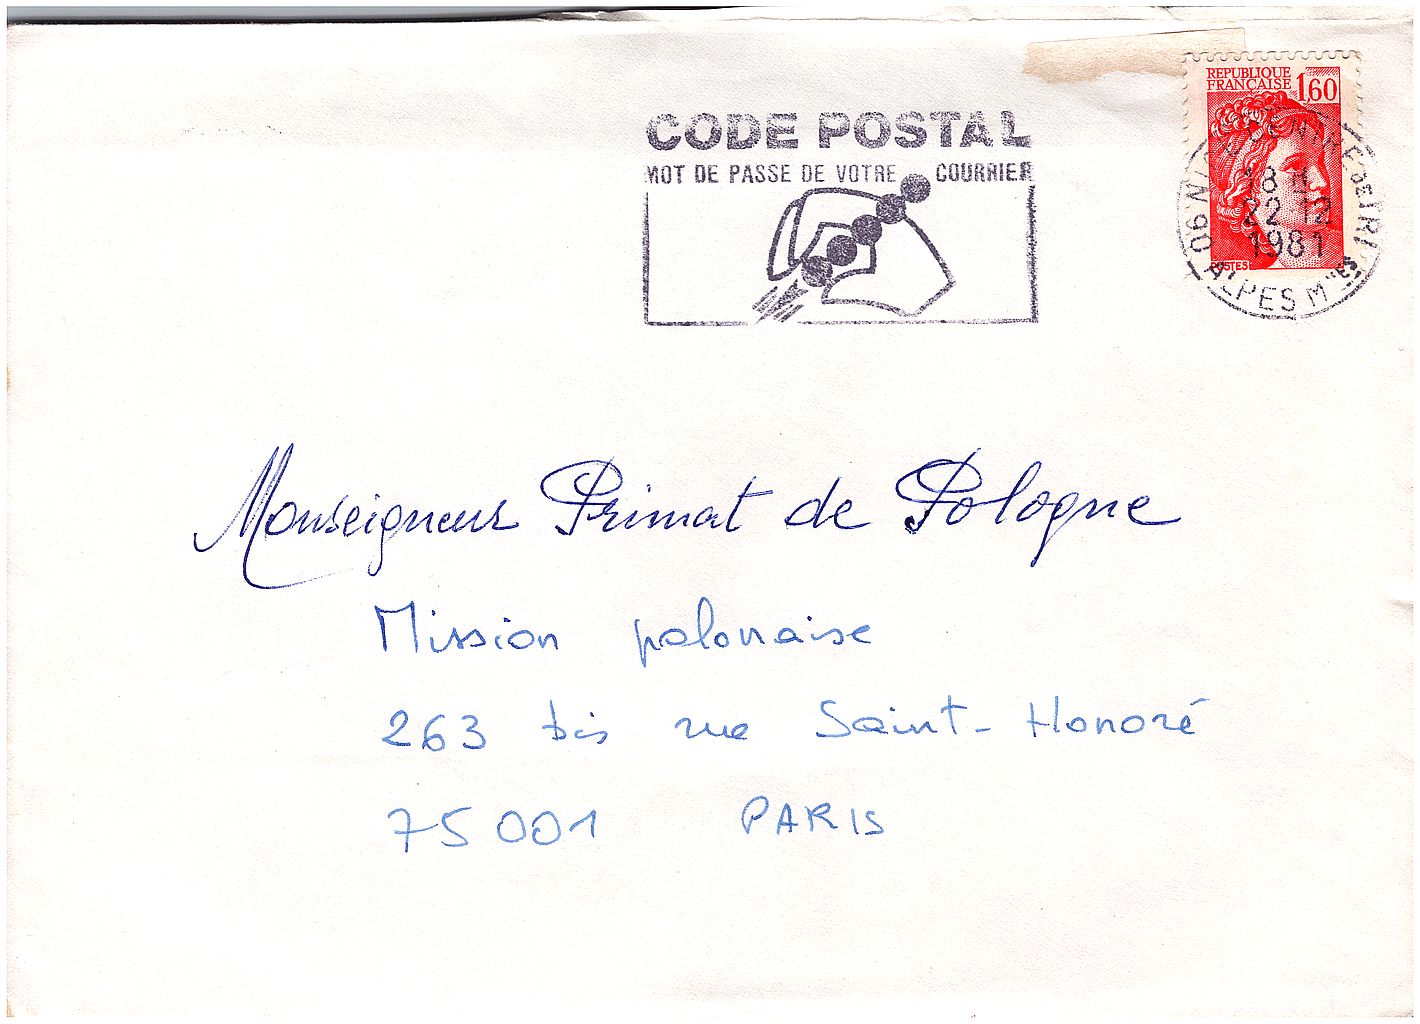 REPUBLIQUE
FRANÇAISE 1,60
POSTES
CODE POSTAL
MOT DE PASSE DE VOTRE COURRIER
18 H
22-12
1981
06 NICE CENTRE DE TRI
ALPES MMES
Monseigneur Primat de Pologne
Mission polonaise
263 bis rue Saint-Honoré
75001 PARIS